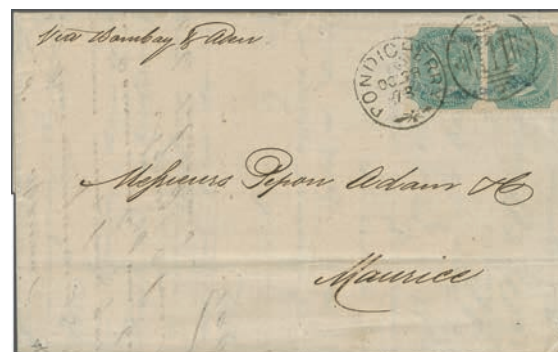 Via Bombay & Aden
PONDICHERRY
OC
Messieurs Pepon Adam & C
Maurice